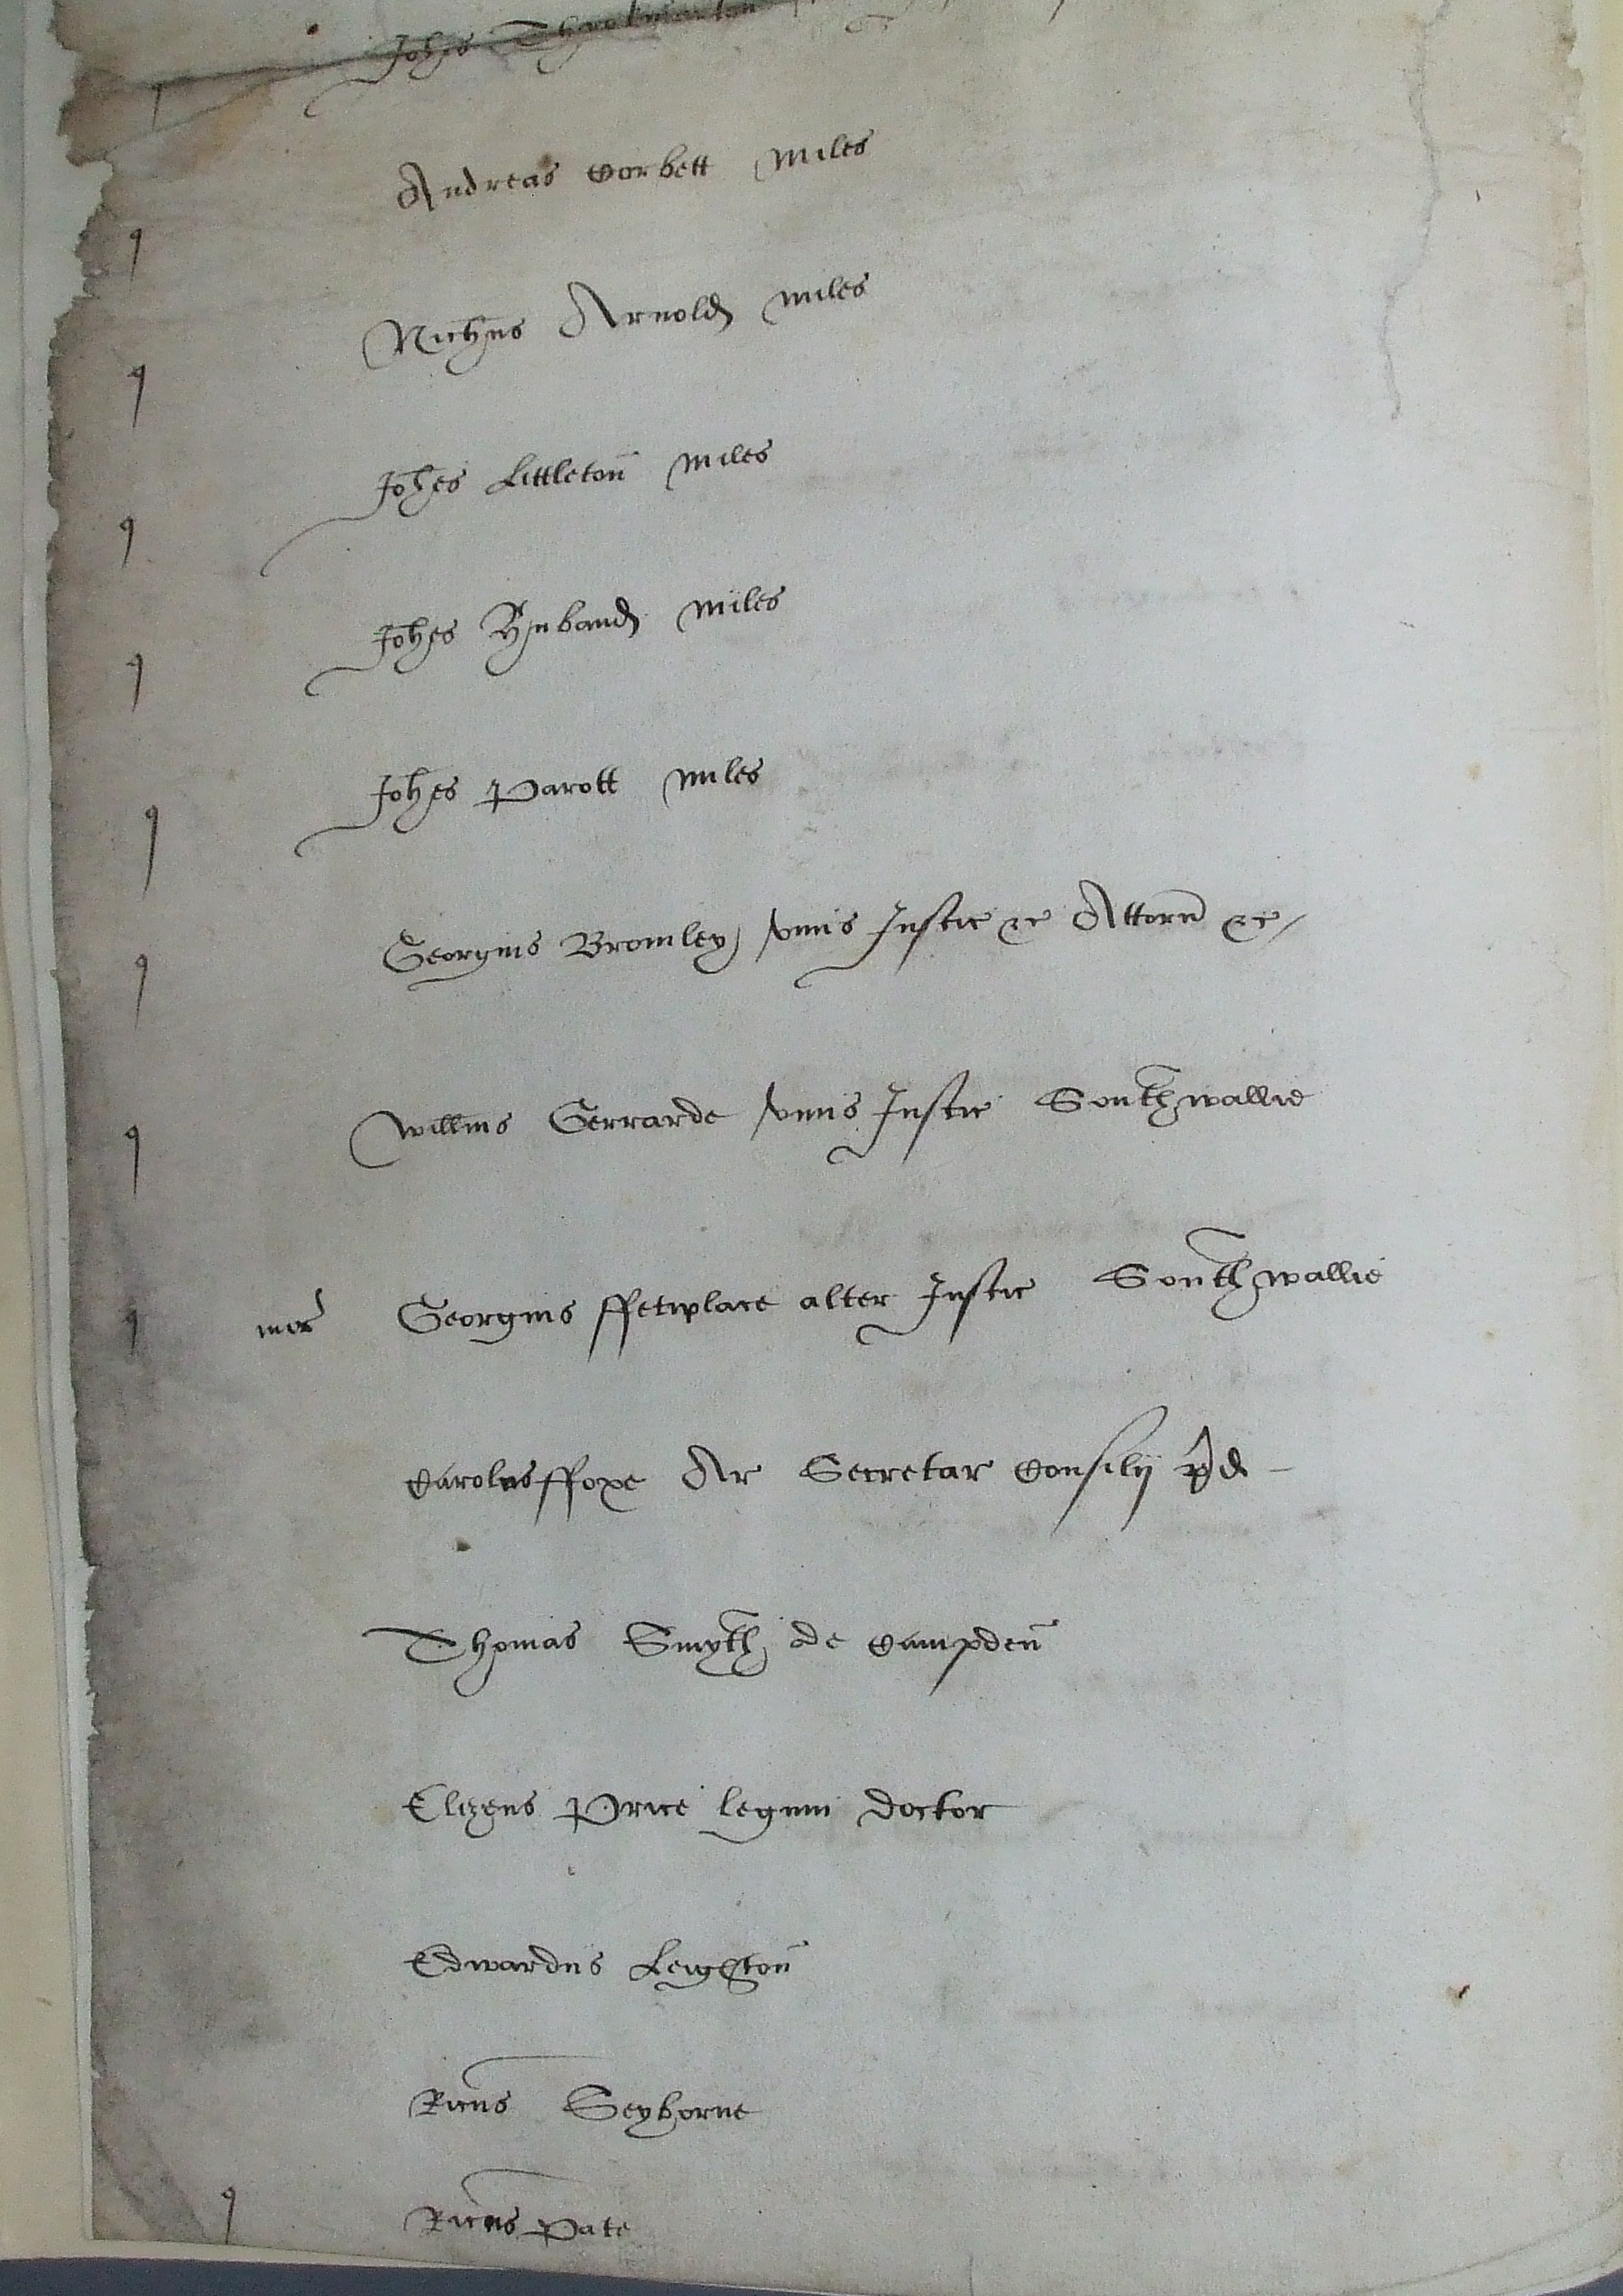 Johes Throkmarton
Andreas Corbett miles
Nichus Arnold miles
Johes Littleton miles
Johes Hubaud miles
Johes Parott miles
Georgius Bromley unus Justic &c Attorn &c
Willms Gerrarde unus Justic Southwallie
mor Georgius ffetiplace alter Justic Southwallie
Carolus ffoxe Ar Secretar Consilij pd
Thomas Smyth de Campden
Elizeus Price legum doctor
Edwardus Leighton
Ricus Seyborne
Ricus Pate